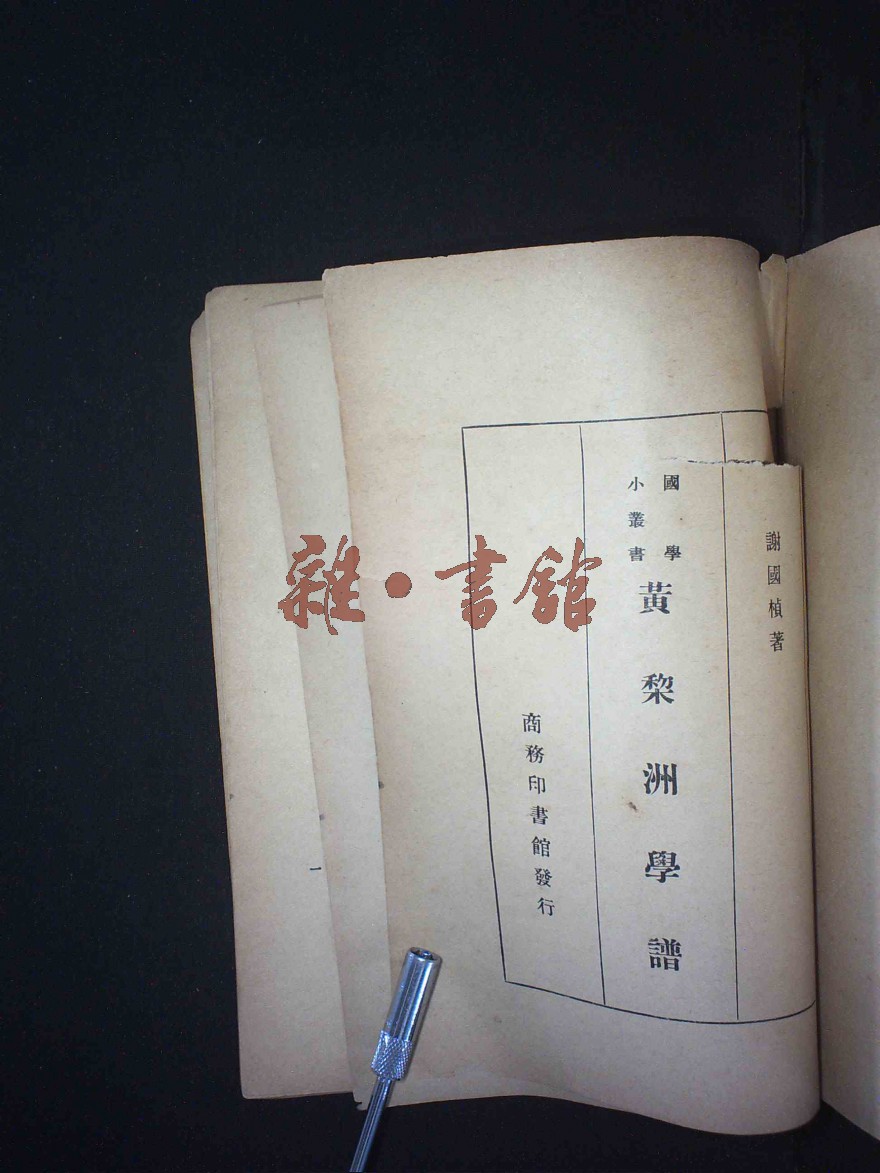 謝國楨著
國學
小叢書
黃棃洲學譜
商務印書館發行
一
雜·書館